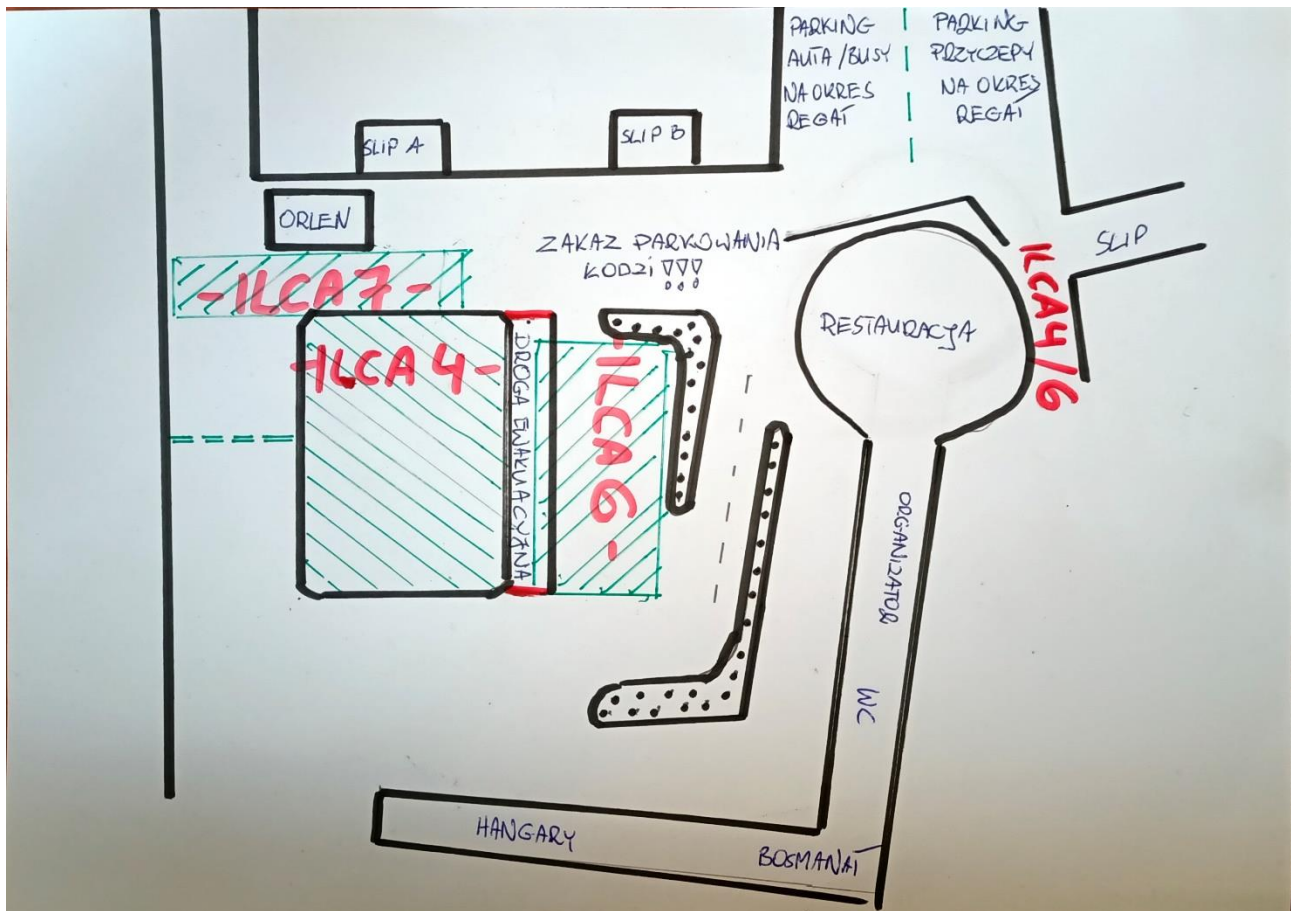 PARKING
AUTA/BUSY
NA OKRES
REGAT
PARKING
PRZYCZEPY
NA OKRES
REGAT
SLIP A
SLIP B
ORLEN
ZAKAZ PARKOWANIA
ŁODZI !!!
SLIP
-ILCA 7-
ILCA 4/6
RESTAURACJA
-ILCA 4-
DROGA EWAKUACYJNA
-ILCA 6-
ORGANIZATOR
WC
HANGARY
BOSMANAT